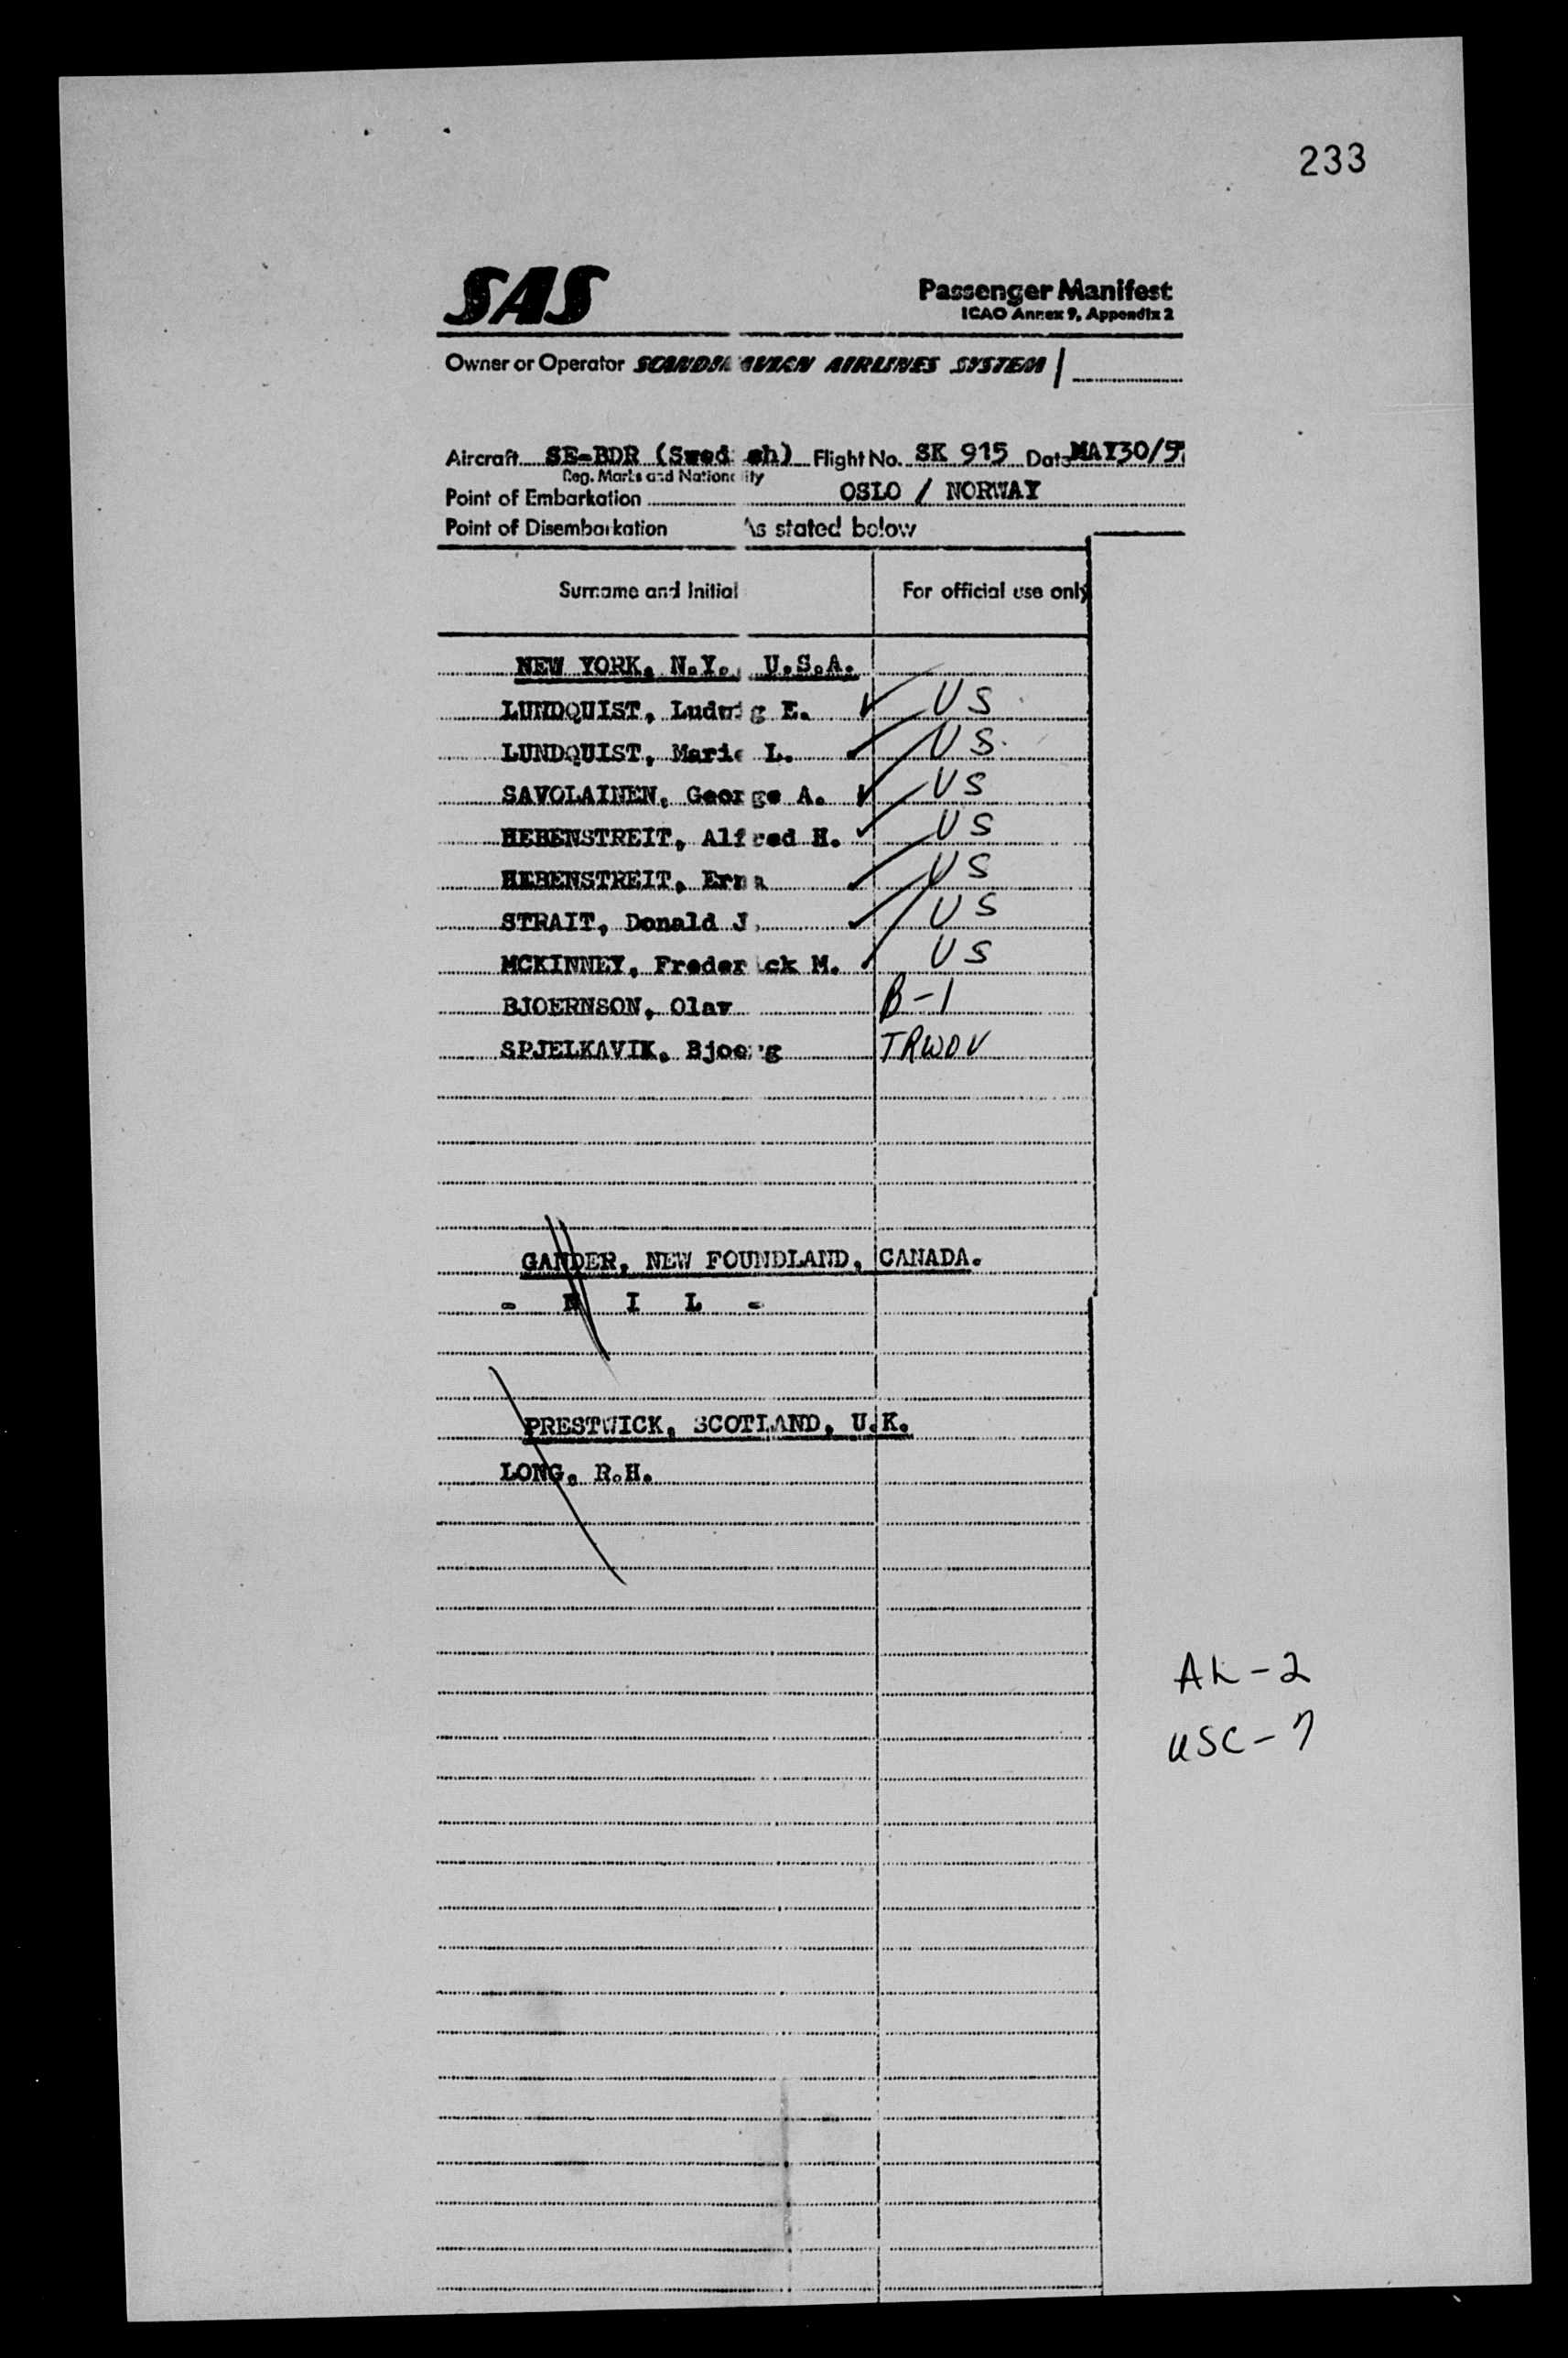 233
SAS
Passenger Manifest
ICAO Annex 9, Appendix 2
Owner or Operator SCANDINAVIAN AIRLINES SYSTEM
Aircraft SE-BDR (Swedish) Flight No. SK 915 Date MAY30/5
Reg. Marks and Nationality
Point of Embarkation OSLO / NORWAY
Point of Disembarkation As stated below
Surname and Initial For official use only
NEW YORK, N.Y., U.S.A.
LUNDQUIST, Ludwig E. US
LUNDQUIST, Marie L. US
SAVOLAINEN, George A. US
HEBENSTREIT, Alfred H. US
HEBENSTREIT, Erna US
STRAIT, Donald J. US
MCKINNEY, Frederick M. US
BJOERNSON, Olav B-1
SPJELKAVIK, Bjoerg TRWOV
GANDER, NEW FOUNDLAND, CANADA.
- N I L -
PRESTWICK, SCOTLAND, U.K.
LONG, R.H.
AL-2
USC-7